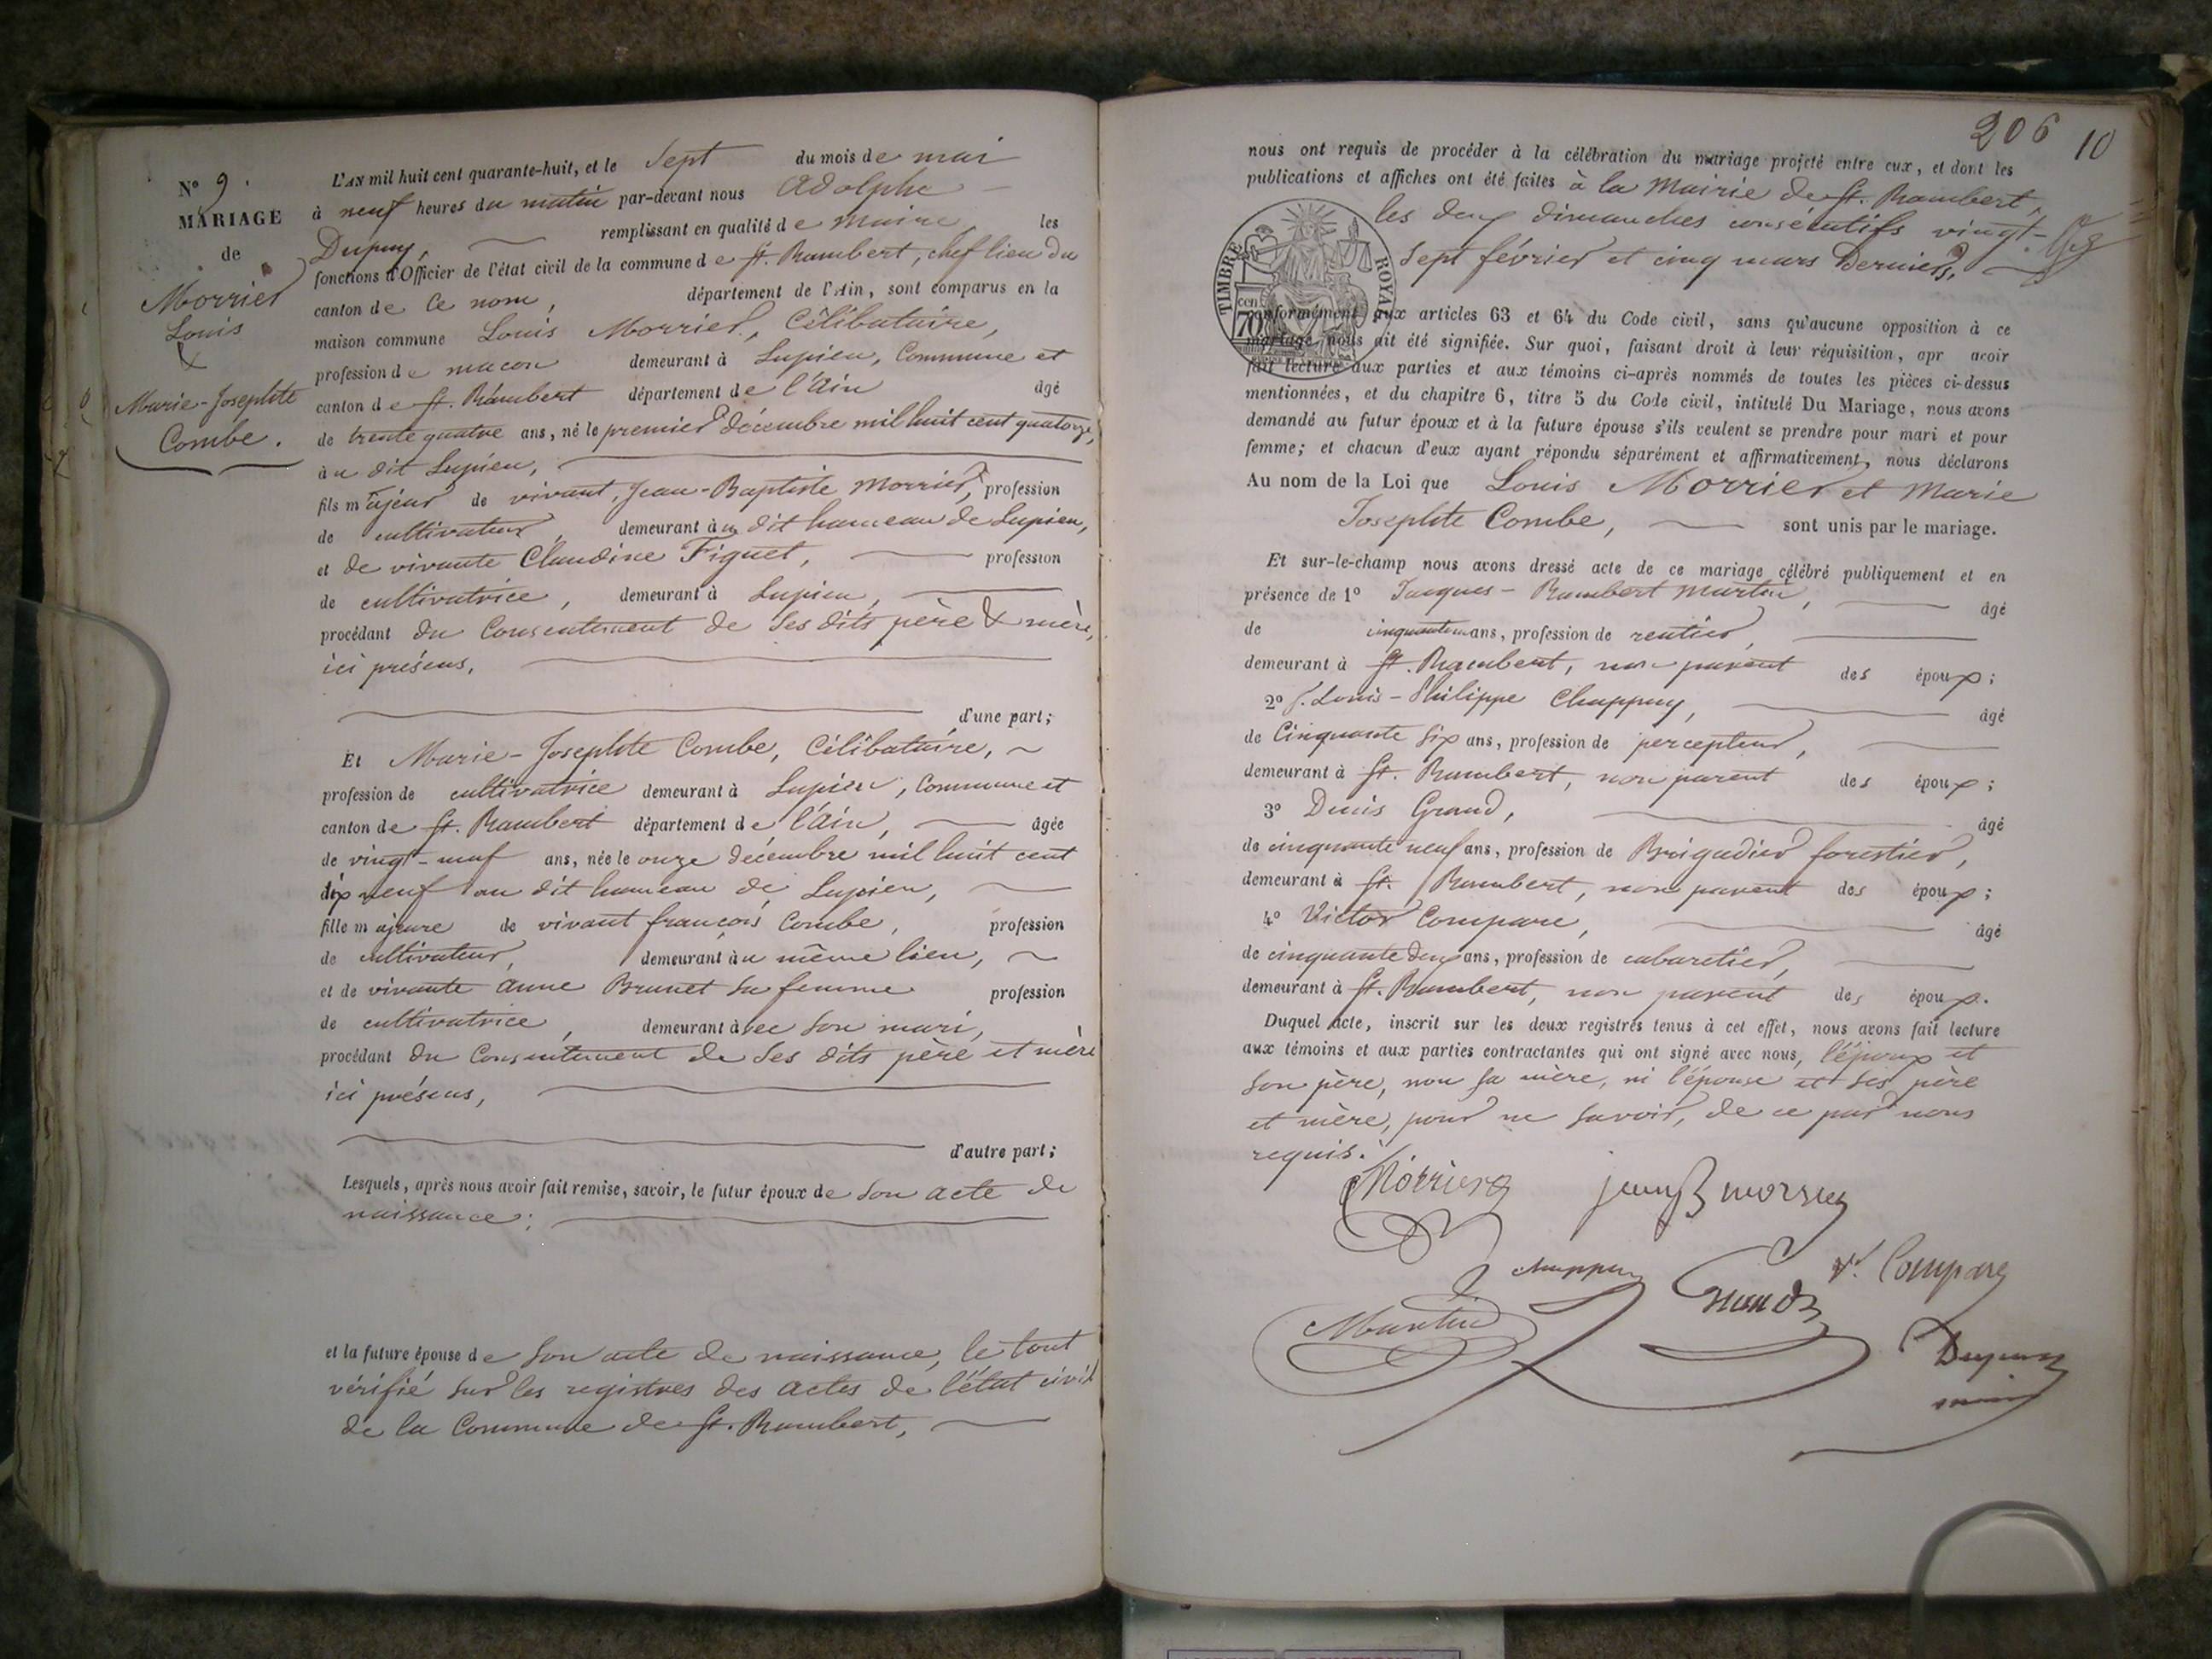 N° 9.
MARIAGE
de
Morrier
Louis
&
Marie-Josephte
Combe.
L'AN mil huit cent quarante-huit, et le Sept du mois de mai
à neuf heures du matin par-devant nous Adolphe
Dupuy, remplissant en qualité de maire les
fonctions d'Officier de l'état civil de la commune de St. Rambert, chef lieu du
canton de ce nom, département de l'Ain, sont comparus en la
maison commune Louis Morrier, Célibataire,
profession de macon demeurant à Lupieu, Commune et
canton de St. Rambert département de l'Ain âgé
de trente quatre ans, né le premier décembre mil huit cent quatorze,
au dit Lupieu,
fils majeur de vivant, Jean-Baptiste Morrier, profession
de cultivateur, demeurant au dit hameau de Lupieu,
et de vivante Claudine Figuet, profession
de cultivatrice, demeurant à Lupieu,
procédant du Consentement de ses dits père & mère,
ici présens,
d'une part;
Et Marie-Josephte Combe, Célibataire,
profession de cultivatrice demeurant à Lupieu, Commune et
canton de St. Rambert département de l'Ain, âgée
de vingt-neuf ans, née le onze décembre mil huit cent
dix neuf au dit hameau de Lupieu,
fille majeure de vivant françois Combe, profession
de cultivateur, demeurant au même lieu,
et de vivante Anne Brunet sa femme profession
de cultivatrice, demeurant avec son mari,
procédant du Consentement de ses dits père et mère
ici présens,
d'autre part;
Lesquels, après nous avoir fait remise, savoir, le futur époux de son acte de
naissance;
et la future épouse de son acte de naissance, le tout
vérifié sur les registres des actes de l'état civil
de la Commune de St. Rambert,
206 10
nous ont requis de procéder à la célébration du mariage projeté entre eux, et dont les
publications et affiches ont été faites à la Mairie de St. Rambert,
les deux dimanches consécutifs vingt-
sept février et cinq mars derniers,
TIMBRE ROYAL
cen
70
conformément aux articles 63 et 64 du Code civil, sans qu'aucune opposition à ce
mariage nous ait été signifiée. Sur quoi, faisant droit à leur réquisition, apr avoir
fait lecture aux parties et aux témoins ci-après nommés de toutes les pièces ci-dessus
mentionnées, et du chapitre 6, titre 5 du Code civil, intitulé Du Mariage, nous avons
demandé au futur époux et à la future épouse s'ils veulent se prendre pour mari et pour
femme; et chacun d'eux ayant répondu séparément et affirmativement, nous déclarons
Au nom de la Loi que Louis Morrier et Marie
Josephte Combe, sont unis par le mariage.
Et sur-le-champ nous avons dressé acte de ce mariage célébré publiquement et en
présence de 1° Jacques-Rambert Martin, âgé
de ans, profession de rentier,
demeurant à St. Rambert, non parent des époux;
2° J. Louis-Philippe Chappuy, âgé
de Cinquante six ans, profession de percepteur,
demeurant à St. Rambert, non parent des époux;
3° Denis Grand, âgé
de cinquante neuf ans, profession de Brigadier forestier,
demeurant à St. Rambert, non parent des époux;
4° Victor Compare, âgé
de cinquante deux ans, profession de cabaretier,
demeurant à St. Rambert, non parent des époux.
Duquel acte, inscrit sur les deux registres tenus à cet effet, nous avons fait lecture
aux témoins et aux parties contractantes qui ont signé avec nous, l'époux et
son père, non sa mère, ni l'épouse et ses père
et mère, pour ne savoir, de ce par nous
requis.
Morrier jean B morrier
chappuy Grand Vr. Compare
Martin Dupuy
maire